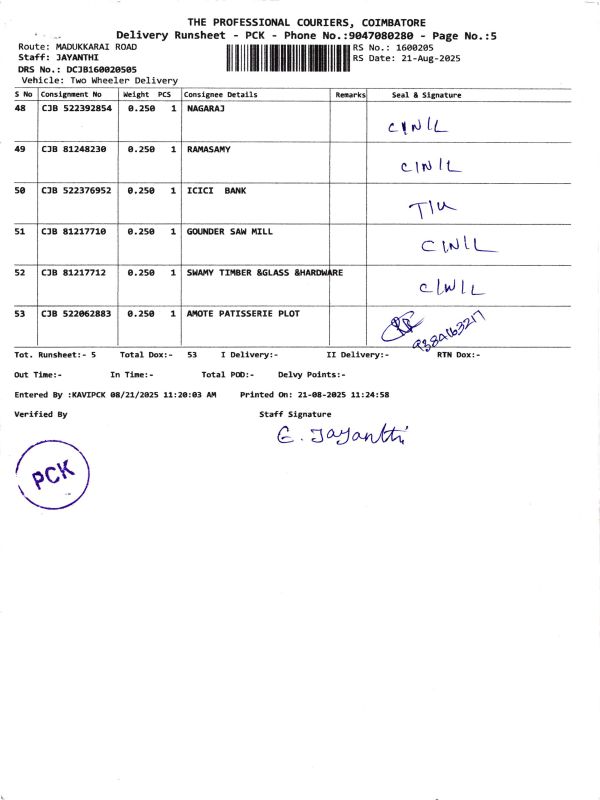 THE PROFESSIONAL COURIERS, COIMBATORE
Delivery Runsheet - PCK - Phone No.:9047080280 - Page No.:5
Route: MADUKKARAI ROAD RS No.: 1600205
Staff: JAYANTHI RS Date: 21-Aug-2025
DRS No.: DCJB160020505
Vehicle: Two Wheeler Delivery
S No Consignment No Weight PCS Consignee Details Remarks Seal & Signature
48 CJB 522392854 0.250 1 NAGARAJ C/N/L
49 CJB 81248230 0.250 1 RAMASAMY C/N/L
50 CJB 522376952 0.250 1 ICICI BANK
51 CJB 81217710 0.250 1 GOUNDER SAW MILL C/N/L
52 CJB 81217712 0.250 1 SWAMY TIMBER &GLASS &HARDWARE C/N/L
53 CJB 522062883 0.250 1 AMOTE PATISSERIE PLOT
Tot. Runsheet:- 5 Total Dox:- 53 I Delivery:- II Delivery:- RTN Dox:-
Out Time:- In Time:- Total POD:- Delvy Points:-
Entered By :KAVIPCK 08/21/2025 11:20:03 AM Printed On: 21-08-2025 11:24:58
Verified By Staff Signature
E. Jayanthi
PCK